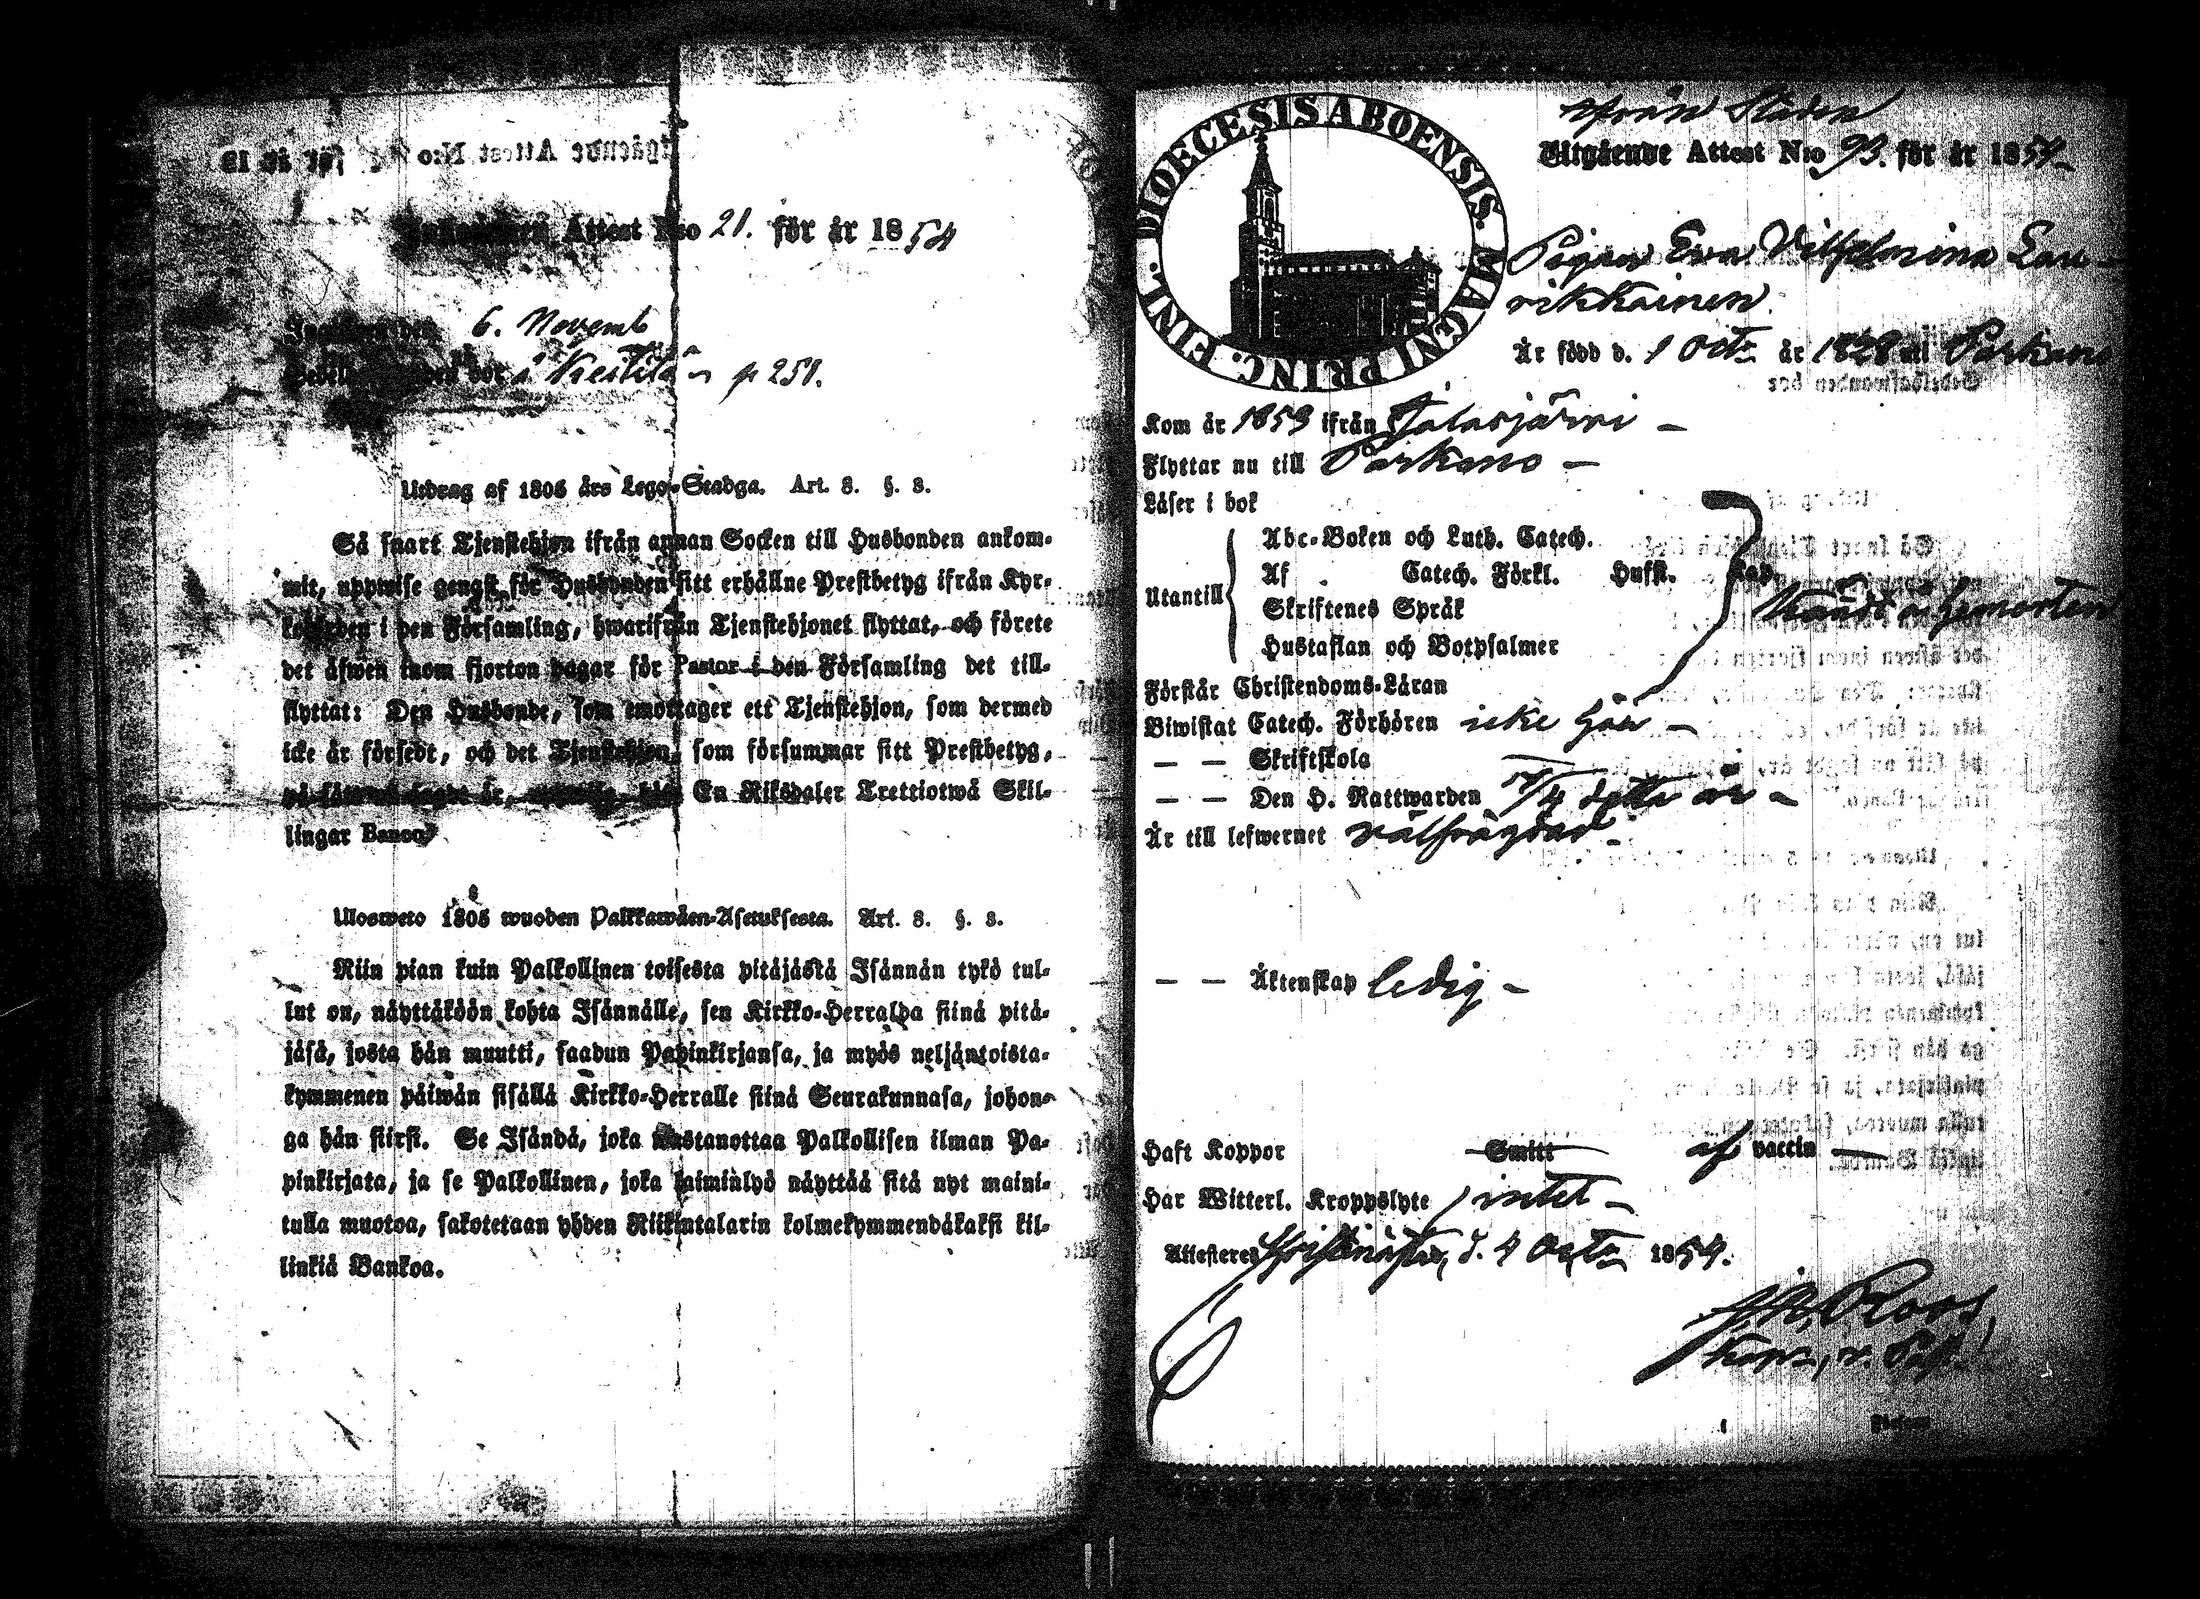 Attest N:o 21. för år 1854
6. Novemb
p 251.
Utdrag af 1805 års Lego-Stadga. Art. 8. §. 8.
Så snart Tjenstehjon ifrån annan Socken till Husbonden ankom-
mit, uppwise gengst för Husbonden sitt erhållne Prestbetyg ifrån Kyr-
koherden i den Församling, hwarifrån Tjenstehjonet flyttat, och förete
det äfwen inom fjorton dagar för Pastor i den Församling det till-
flyttat: Den Husbonde, som emottager ett Tjenstehjon, som dermed
icke är försedt, och det Tjenstehjon, som försummar sitt Prestbetyg,
på sätt nu sagdt är, En Riksdaler Trettiotwå Skil-
lingar Banco
Ulosweto 1805 wuoden Palkkawäen-Asetuksesta. Art. 8. §. 8.
Niin pian kuin Palkollinen toisesta pitäjästä Isännän tykö tul-
lut on, näyttäköön kohta Isännälle, sen Kirkko-Herralda siinä pitä-
jäsä, josta hän muutti, saadun Papinkirjansa, ja myös neljäntoista-
kymmenen päiwän sisällä Kirkko-Herralle siinä Seurakunnasa, johon-
ga hän siirsi. Se Isändä, joka wastanottaa Palkollisen ilman Pa-
pinkirjata, ja se Palkollinen, joka laiminlyö näyttää sitä nyt maini-
tulla muotoa, sakotetaan yhden Riikintalarin kolmekymmendäkaksi kil-
linkiä Bankoa.
DIOECESIS ABOENSIS. MAGNI PRINC. FINL.
ifrån Staden
Utgående Attest N:o 93. för år 1854
Pigan Eva Vilhelmina Lau-
rikkainen.
Är född d. 1 Octr år 1828 uti Parkano
Kom år 1853 ifrån Jalasjärvi
Flyttar nu till Parkano
Läser i bok
Utantill
Abc-Boken och Luth. Catech.
Af Catech. Förkl. Hufst. Kap.
Skriftenes Språk
Hustaflan och Botpsalmer
Förstår Christendoms-Läran
Biwistat Catech. Förhören icke här
— — Skriftskola
— — Den H. Nattwarden detta år
Är till lefwernet välfrägdad
— — Äktenskap ledig
Haft Koppor Smitt af vaccin
Har Witterl. Kroppslyte intet
Attesteres Christinæstad, d. 4 Octr 1854.
Roos,